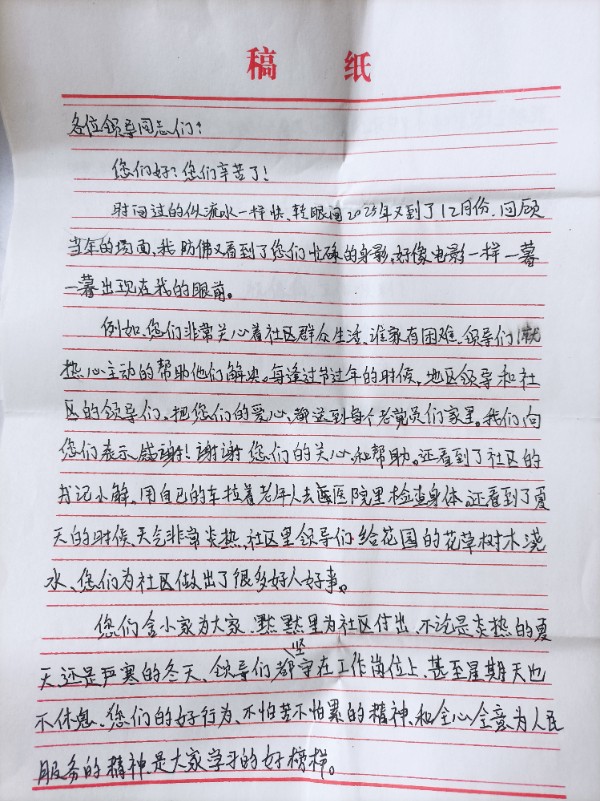 稿 纸
各位领导同志们:
您们好?您们辛苦了!
时间过的似流水一样快、转眼间2023年又到了12月份、回顾
当年的场面、我仿佛又看到了您们忙碌的身影、好像电影一样一暮
一暮出现在我的眼前。
例如、您们非常关心着社区群众生活、谁家有困难、领导们就
热心主动的帮助他们解决。每逢过节过年的时候、地区领导和社
区的领导们、把您们的爱心、都送到每个老党员们家里。我们向
您们表示感谢!谢谢您们的关心和帮助。还看到了社区的
书记小解、用自己的车拉着老年人去医院里检查身体、还看到了夏
天的时候、天气非常炎热、社区里领导们给花园的花草树木浇
水、您们为社区做出了很多好人好事。
您们舍小家为大家、默默里为社区付出、不论是炎热的夏
天还是严寒的冬天、领导们都坚守在工作岗位上、甚至星期天也
不休息、您们的好行为、不怕苦不怕累的精神、和全心全意为人民
服务的精神、是大家学习的好榜样。